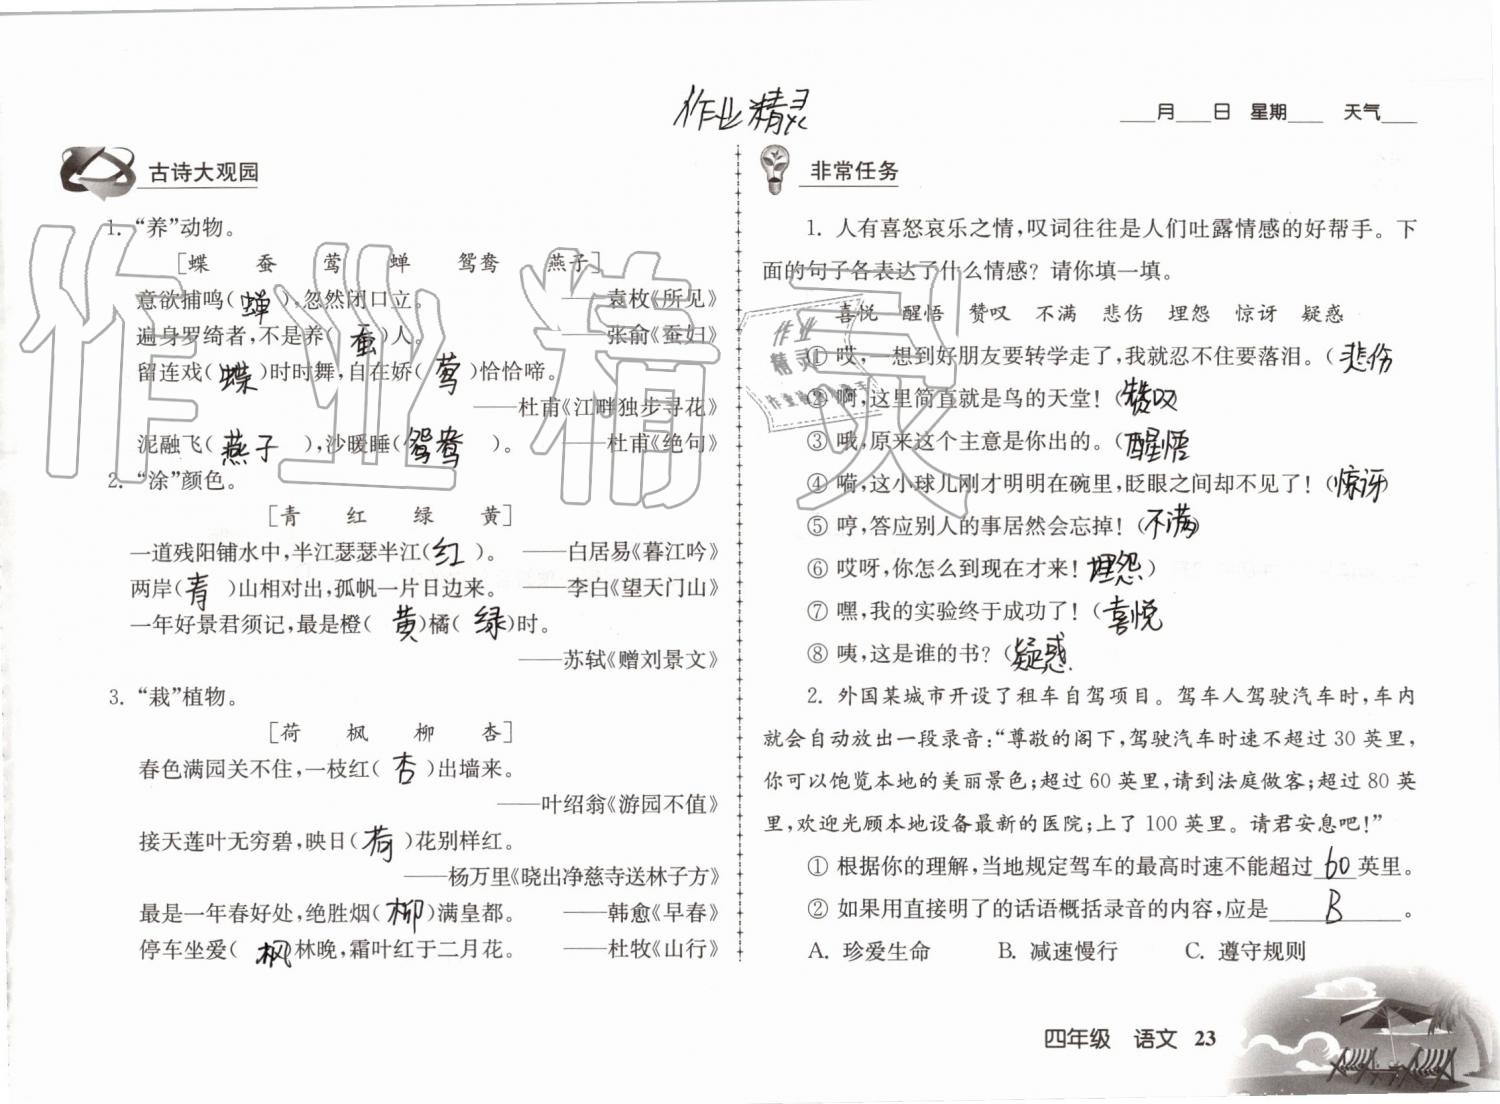 作业精灵
____月____日 星期____ 天气____
古诗大观园
1. “养”动物。
[蝶 蚕 莺 蝉 鸳鸯 燕子]
意欲捕鸣(蝉),忽然闭口立。 ——袁枚《所见》
遍身罗绮者,不是养(蚕)人。 ——张俞《蚕妇》
留连戏(蝶)时时舞,自在娇(莺)恰恰啼。
——杜甫《江畔独步寻花》
泥融飞(燕子),沙暖睡(鸳鸯)。 ——杜甫《绝句》
2. “涂”颜色。
[青 红 绿 黄]
一道残阳铺水中,半江瑟瑟半江(红)。 ——白居易《暮江吟》
两岸(青)山相对出,孤帆一片日边来。 ——李白《望天门山》
一年好景君须记,最是橙(黄)橘(绿)时。
——苏轼《赠刘景文》
3. “栽”植物。
[荷 枫 柳 杏]
春色满园关不住,一枝红(杏)出墙来。
——叶绍翁《游园不值》
接天莲叶无穷碧,映日(荷)花别样红。
——杨万里《晓出净慈寺送林子方》
最是一年春好处,绝胜烟(柳)满皇都。 ——韩愈《早春》
停车坐爱(枫林晚,霜叶红于二月花。 ——杜牧《山行》
非常任务
1. 人有喜怒哀乐之情,叹词往往是人们吐露情感的好帮手。下
面的句子各表达了什么情感?请你填一填。
喜悦 醒悟 赞叹 不满 悲伤 埋怨 惊讶 疑惑
① 哎,一想到好朋友要转学走了,我就忍不住要落泪。(悲伤
② 啊,这里简直就是鸟的天堂!(赞叹
③ 哦,原来这个主意是你出的。(醒悟
④ 嗬,这小球儿刚才明明在碗里,眨眼之间却不见了!(惊讶)
⑤ 哼,答应别人的事居然会忘掉!(不满)
⑥ 哎呀,你怎么到现在才来!埋怨)
⑦ 嘿,我的实验终于成功了!(喜悦
⑧ 咦,这是谁的书?(疑惑
2. 外国某城市开设了租车自驾项目。驾车人驾驶汽车时,车内
就会自动放出一段录音:“尊敬的阁下,驾驶汽车时速不超过 30 英里,
你可以饱览本地的美丽景色;超过 60 英里,请到法庭做客;超过 80 英
里,欢迎光顾本地设备最新的医院;上了 100 英里。请君安息吧!”
① 根据你的理解,当地规定驾车的最高时速不能超过 60 英里。
② 如果用直接明了的话语概括录音的内容,应是 B 。
A. 珍爱生命 B. 减速慢行 C. 遵守规则
四年级 语文 23
作业精灵
作业
精灵